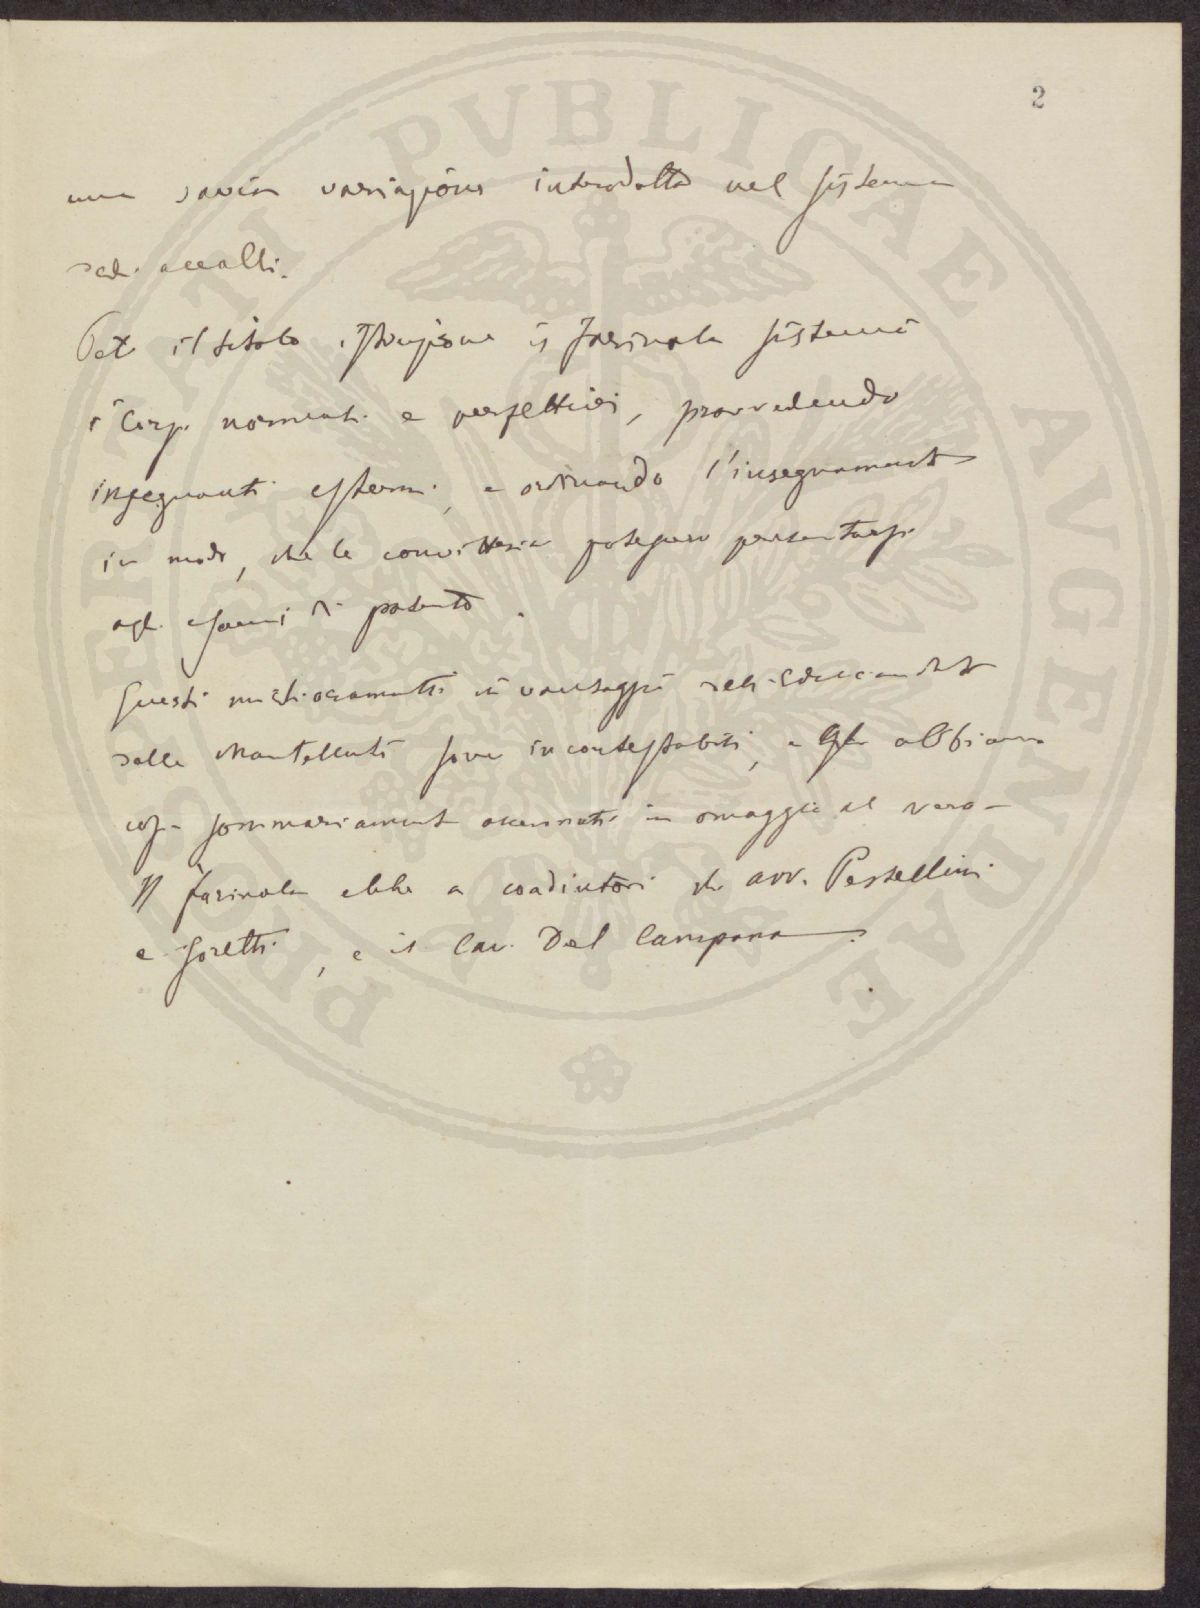 2
una savia variazione introdotta nel sistema
degli accolli.
Per il titolo istruzione il Farinola sistemò
i Corsi normali e perfettivi, provvedendo
insegnanti esterni, e ordinando l'insegnamento
in modo, che le convittrici potessero presentarsi
agli esami di patente.
Questi miglioramenti vantaggi dell'Educandato
delle Mantellate sono incontestabili, e gli abbiamo
così sommariamente accennati in omaggio al vero-
Il Farinola ebbe a coadiutori gli avv. Pestellini
e , e il Cav. Del Campana.
PIETATI PVBLICAE AVGENDAE